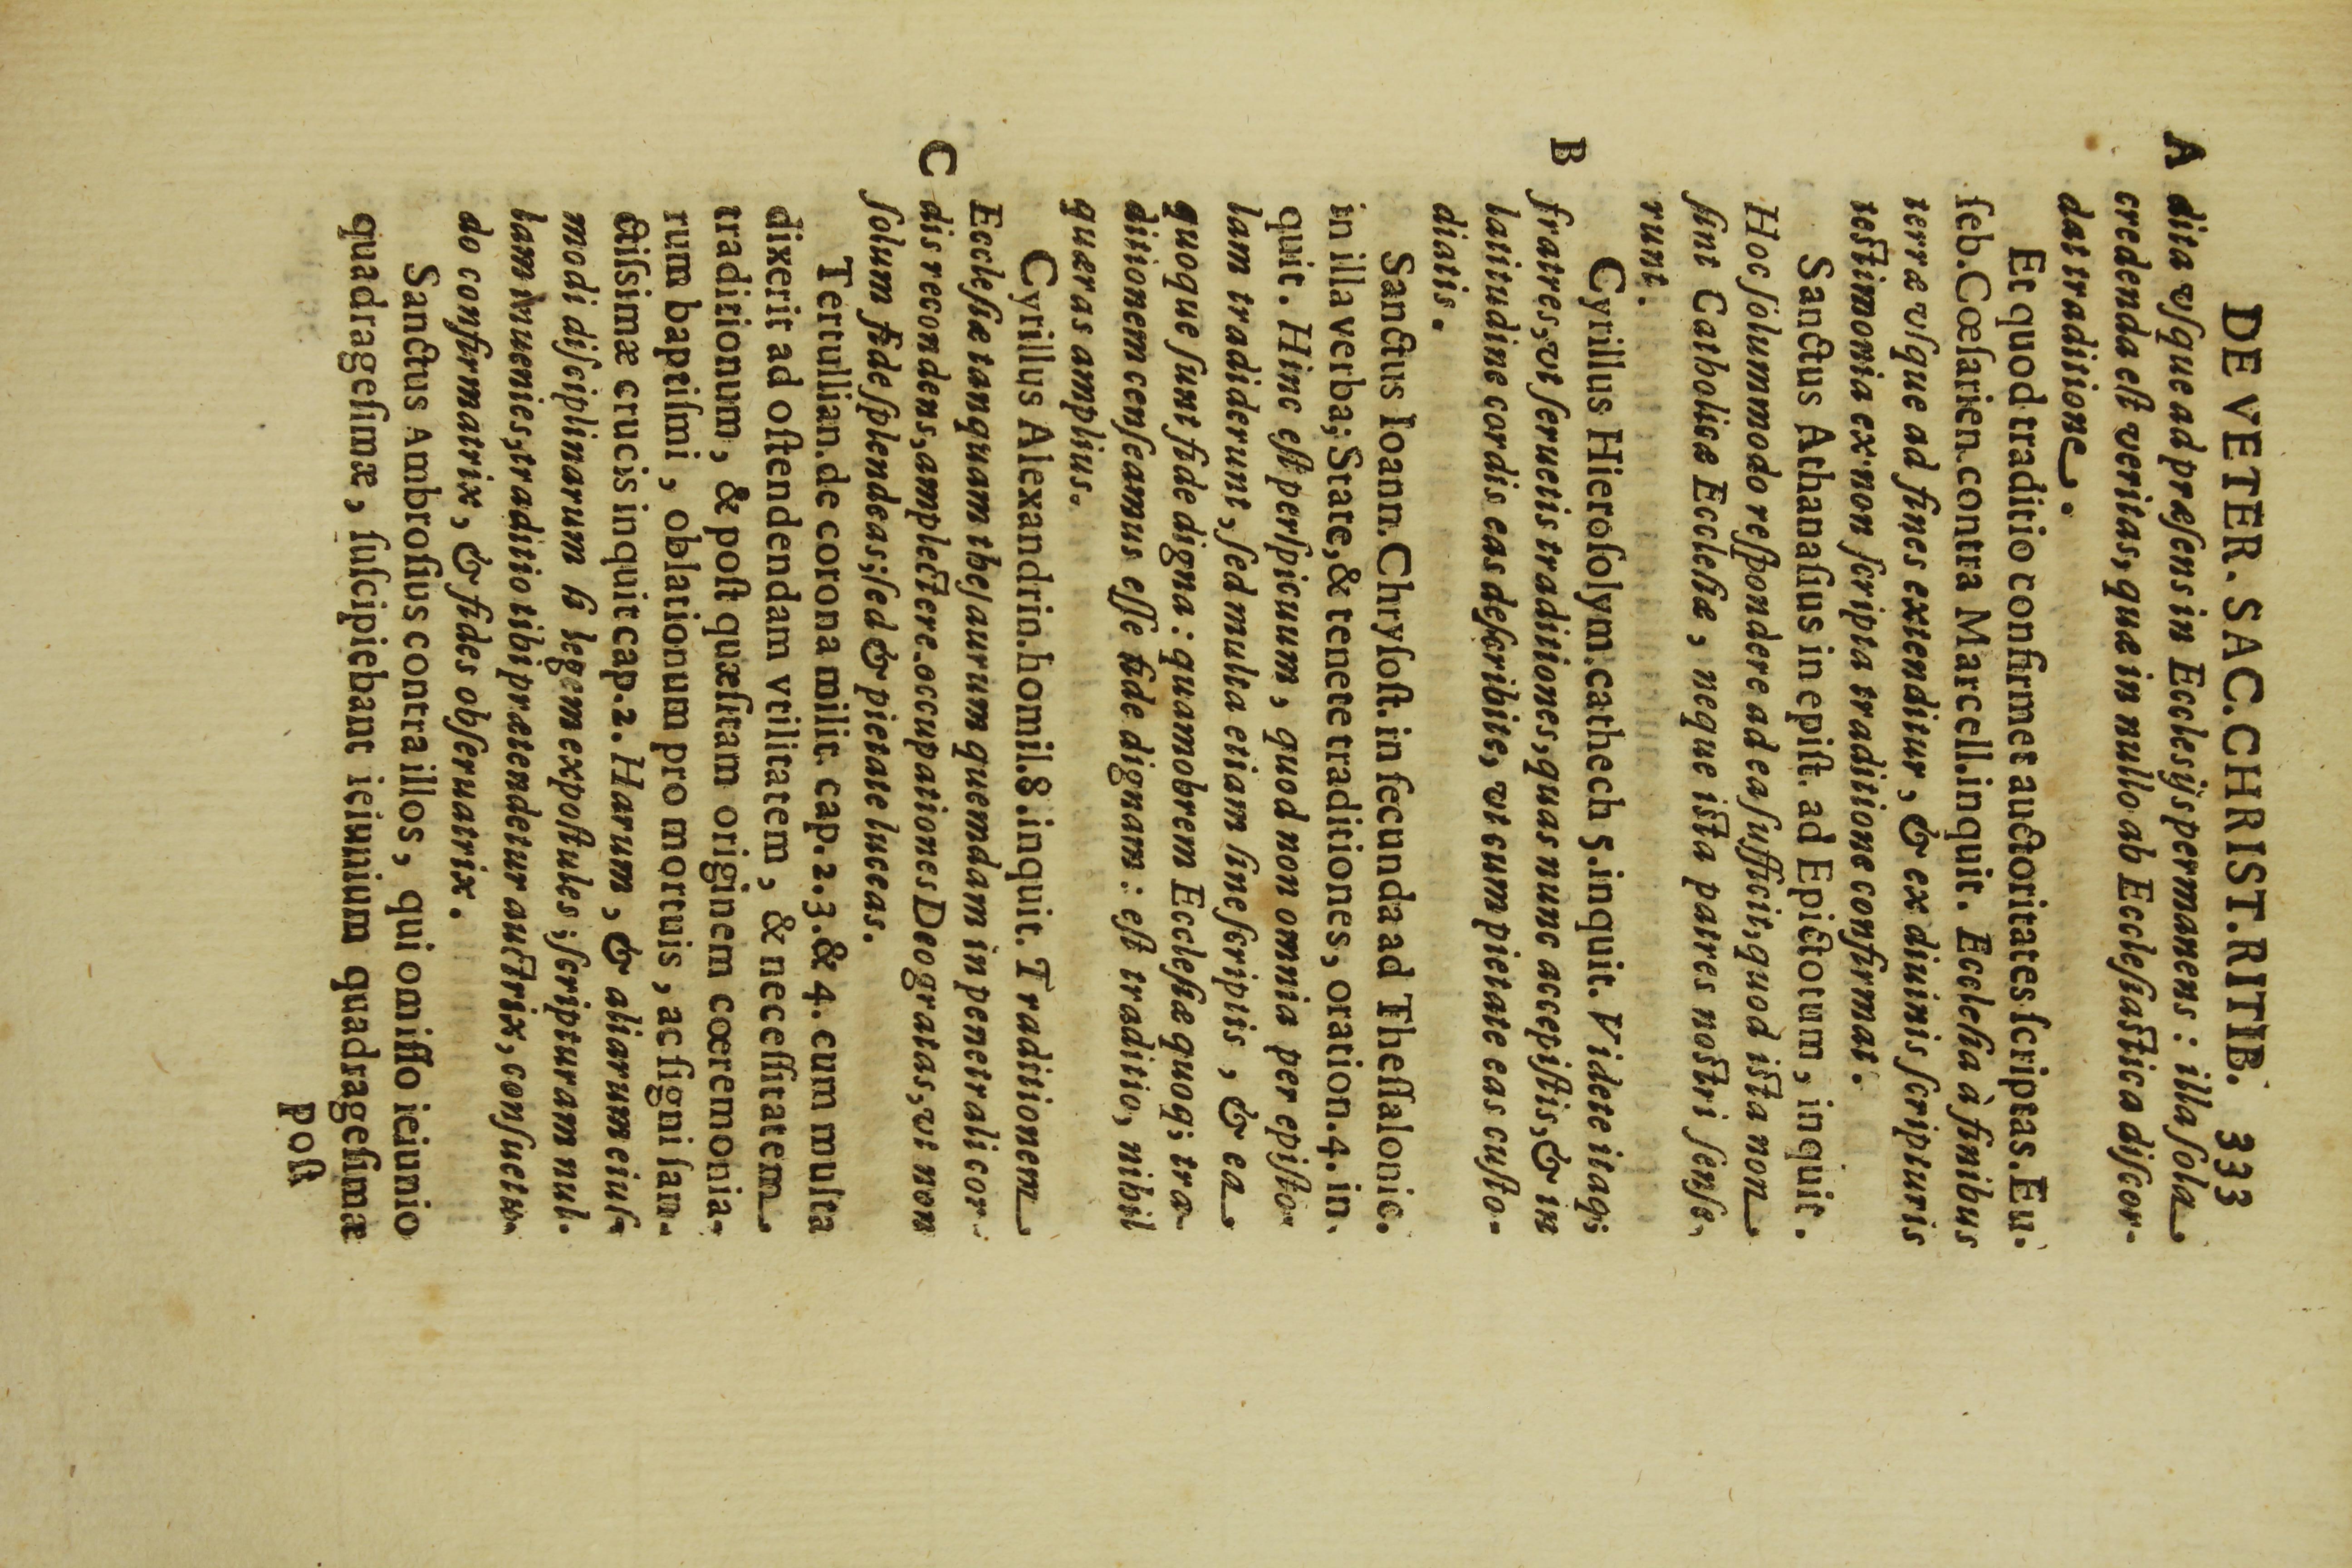 DE VETER. SAC. CHRIST. RITIB. 333
A dita vſque ad præſens in Eccleſijs permanens: illa ſola
credenda eſt veritas, quæ in nullo ab Eccleſiaſtica diſcor-
dat traditione.
Et quod traditio confirmet auctoritates ſcriptas. Eu-
ſeb. Cœſarien. contra Marcell. inquit. Eccleſia à finibus
terræ vſque ad fines extenditur, & ex diuinis ſcripturis
teſtimonia ex non ſcripta traditione confirmat.
Sanctus Athanaſius in epiſt. ad Epictotum, inquit.
Hoc ſolummodo reſpondere ad ea ſufficit, quod iſta non
ſint Catholicæ Eccleſiæ, neque iſta patres noſtri ſenſe-
runt.
Cyrillus Hieroſolym. cathech 5. inquit. Videte itaq;
B fratres, vt ſeruetis traditiones, quas nunc accepiſtis, & in
latitudine cordis eas deſcribite, vt cum pietate eas cuſto-
diatis.
Sanctus Ioann. Chryſoſt. in ſecunda ad Theſſalonic.
in illa verba; State, & tenete traditiones, oration. 4. in-
quit. Hinc eſt perſpicuum, quod non omnia per epiſto-
lam tradiderunt, ſed multa etiam ſine ſcriptis, & ea
quoque ſunt fide digna: quamobrem Eccleſiæ quoq; tra-
ditionem cenſeamus eſſe fide dignam: eſt traditio, nihil
quæras amplius.
Cyrillus Alexandrin. homil. 8. inquit. Traditionem
Eccleſiæ tanquam theſaurum quemdam in penetrali cor-
C dis recondens, amplectere occupationes Deo gratas, vt non
ſolum fide ſplendeas; ſed & pietate luceas.
Tertullian. de corona milit. cap. 2. 3. & 4. cum multa
dixerit ad oſtendendam vtilitatem, & neceſſitatem
traditionum, & poſt quæſitam originem cœremonia-
rum baptiſmi, oblationum pro mortuis, ac ſigni ſan-
ctiſsimæ crucis inquit cap. 2. Harum, & aliarum eiuſ-
modi diſciplinarum ſi legem expoſtules; ſcripturam nul-
lam inuenies, traditio tibi prætendetur auctrix, conſuetu-
do confirmatrix, & fides obſeruatrix.
Sanctus Ambroſius contra illos, qui omiſſo ieiunio
quadrageſimæ, ſuſcipiebant ieiunium quadrageſimæ
poſt